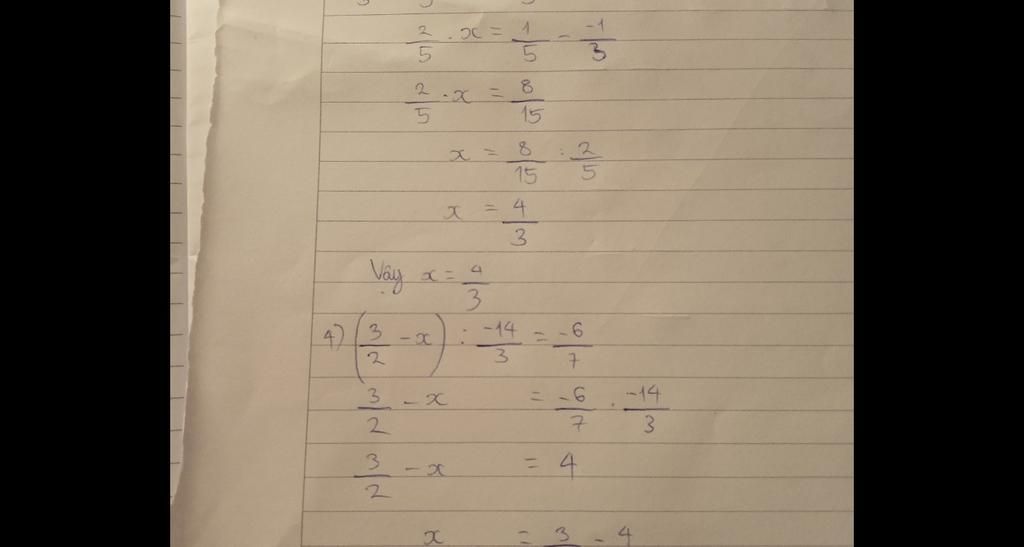 2/5 . x = 1/5 - -1/3
2/5 . x = 8/15
x = 8/15 : 2/5
x = 4/3
Vậy x = 4/3
4) (3/2 - x) : -14/3 = -6/7
3/2 - x = -6/7 . -14/3
3/2 - x = 4
x = 3 - 4